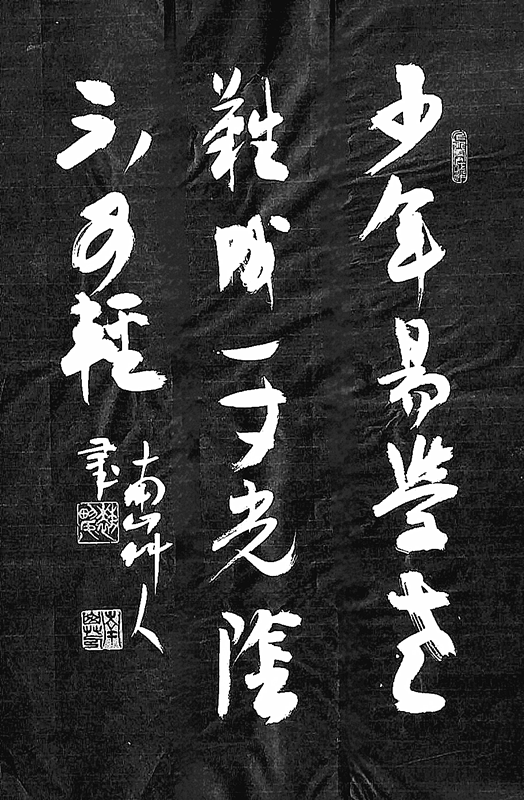 少年易學老
難成一寸光陰
不可輕
南山人
書